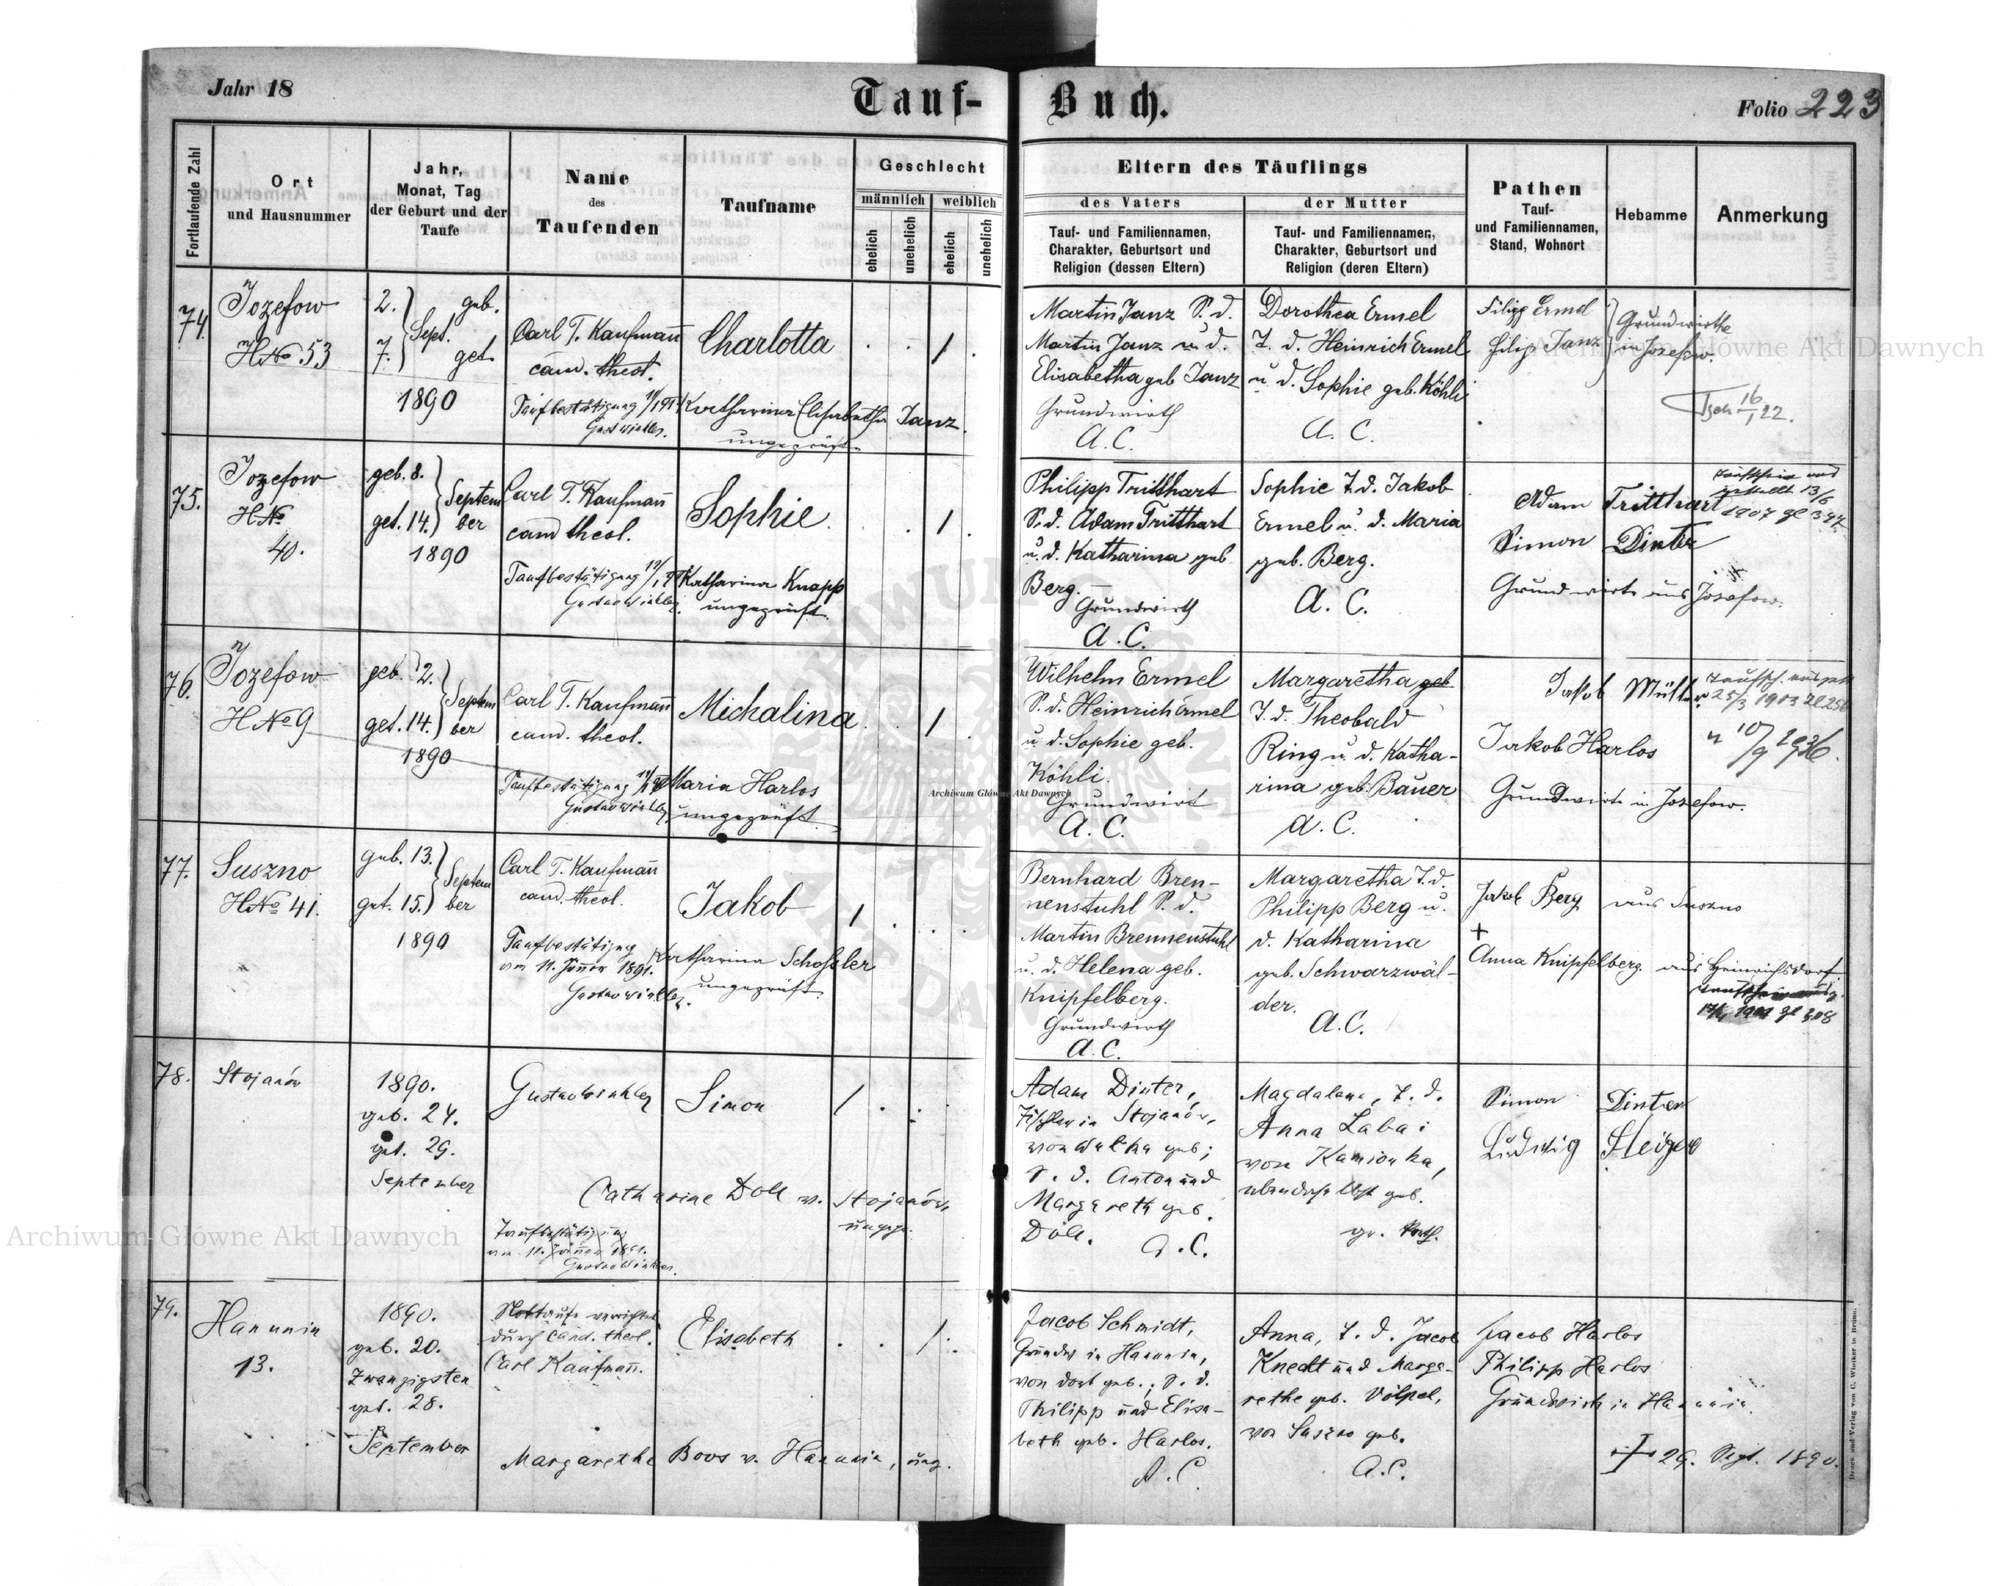 Jahr 18
Tauf-Buch.
Folio 223
Fortlaufende Zahl
Ort
und Hausnummer
Jahr,
Monat, Tag
der Geburt und der
Taufe
Name
des
Taufenden
Taufname
Geschlecht
männlich
weiblich
ehelich
unehelich
ehelich
unehelich
Eltern des Täuflings
des Vaters
Tauf- und Familiennamen,
Charakter, Geburtsort und
Religion (dessen Eltern)
der Mutter
Tauf- und Familiennamen,
Charakter, Geburtsort und
Religion (deren Eltern)
Pathen
Tauf-
und Familiennamen,
Stand, Wohnort
Hebamme
Anmerkung
74.
Jozefow
HNo 53
2. geb.
Sept.
7. get.
1890
Carl T. Kaufmann
cand. theol.
Taufbestätigung
Gust Winkler.
Charlotta
Katharina Elisabetha Janz.
ungeprüft.
Martin Janz S. d.
Martin Janz u. d.
Elisabetha geb Janz
Grundwirth
A. C.
Dorothea Ermel
T. d. Heinrich Ermel
u. d. Sophie geb. Köhli
A. C.
Filipp Ermel
Filip Janz
Grundwirthe
in Jozefow.
16/1 22.
75.
Jozefow
HNo
40.
geb. 8.
Septem
get. 14. ber
1890
Carl T. Kaufmann
cand theol.
Taufbestätigung
Gustav Winkler
Sophie.
Katharina Knapp
ungeprüft.
Philipp Tritthart
S. d. Adam Tritthart
u. d. Katharina geb
Berg.
Grundwirth
A. C.
Sophie T. d. Jakob
Ermel u. d. Maria
geb. Berg.
A. C.
Adam Tritthart
Simon Dinter
Grundwirte aus Josefow.
13/6
1907
76.
Jozefow
HNo 9
geb. 2.
Septem
get. 14. ber
1890
Carl T. Kaufmann
cand. theol.
Taufbestätigung
Gustav Winkler
Michalina
Maria Harlos
ungeprüft.
Wilhelm Ermel
S. d. Heinrich Ermel
u. d. Sophie geb.
Köhli.
Grundwirt
A. C.
Margaretha geb
T. d. Theobald
Ring u. d. Katha-
rina geb. Bauer
A. C.
Jakob Müller
Jakob Harlos
Grundwirte in Josefow.
25/3 1903
10/9 1936.
77.
Suszno
HNo 41.
geb. 13.
Septem
get. 15. ber
1890
Carl T. Kaufmann
cand. theol.
Taufbestätigung
am 11. Jänner 1891.
Gustav Winkler.
Jakob
Katharina Schoßler
ungeprüft.
Bernhard Bren-
nenstuhl S. d.
Martin Brennenstuhl
u. d. Helena geb.
Knipfelberg.
Grundwirth
A. C.
Margaretha T. d.
Philipp Berg u.
d. Katharina
geb. Schwarzwäl-
der.
A. C.
Jakob Berg aus Suszno
+
Anna Knipfelberg aus Heinrichsdorf.
78.
Stojanów
1890.
geb. 24.
get. 29.
September
Gustav Winkler
Simon
Catharine Doll v. Stojanów,
ungepr.
Taufbestätigung
am 11. Jänner 1891.
Gustav Winkler.
Adam Dinter,
Tischler in Stojanów,
von Wulka geb;
S. d. Anton und
Margareth geb.
Döll.
A. C.
Magdalena, T. d.
Anna Labai
von Kamionka,
ebendaselbst geb.
gr. kath.
Simon Dinter
Ludwig
79.
Hanunin
13.
1890.
geb. 20.
Zwanzigsten
get. 28.
September
Nottaufe verrichtet
durch cand. theol.
Carl Kaufmann.
Elisabeth
Margarethe Boos v. Hanunin, ung.
Jacob Schmidt,
Grundw in Hanunin,
von dort geb., S. d.
Philipp und Elisa-
beth geb. Harlos.
A. C.
Anna, T. d. Jacob
Knecht und Marga-
rethe geb. Völpel,
von Suszno geb.
A. C.
Jacob Harlos
Philipp Harlos
Grundwirth in Hanunin.
29. Sept. 1890.
Druck und Verlag von C. Winiker in Brünn.
Archiwum Główne Akt Dawnych
Archiwum Główne Akt Dawnych
Archiwum Główne Akt Dawnych